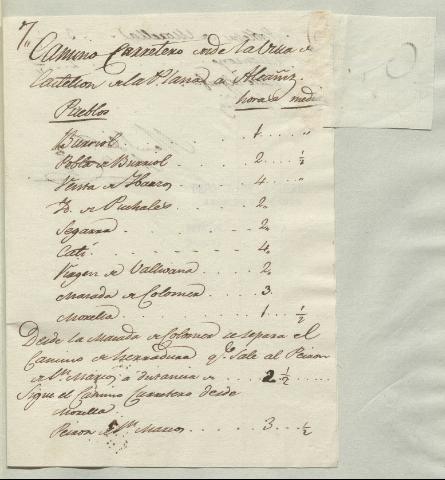 7
Camino Carretero desde la Villa de
Castellon de la Plana à Alcañiz.
Pueblos hora s medi
Burriol. . . . . 1 . . "
Pobla de Burriol . . . . 2 . . ½
Venta de Ybarzo . . . . 4 . . "
Y. de Puchales . . . . . 2 . .
Segarra . . . . . 2 . .
Catí . . . . . 4 . .
Virgen de Vallivana . . . . 2 . .
Masada de Colomer . . . . 3 .
Morella . . . . . 1 . . ½
Desde la Masada de Colomer se separa el
Camino de Herradura qe. Sale al Peiron
de Sn. Marcos, à distancia de . . . . 2 ½ . . . .
Sigue el Camino Carretero desde
Morella.
Peiron de Sn. Marcos . . . . 3 . . ½